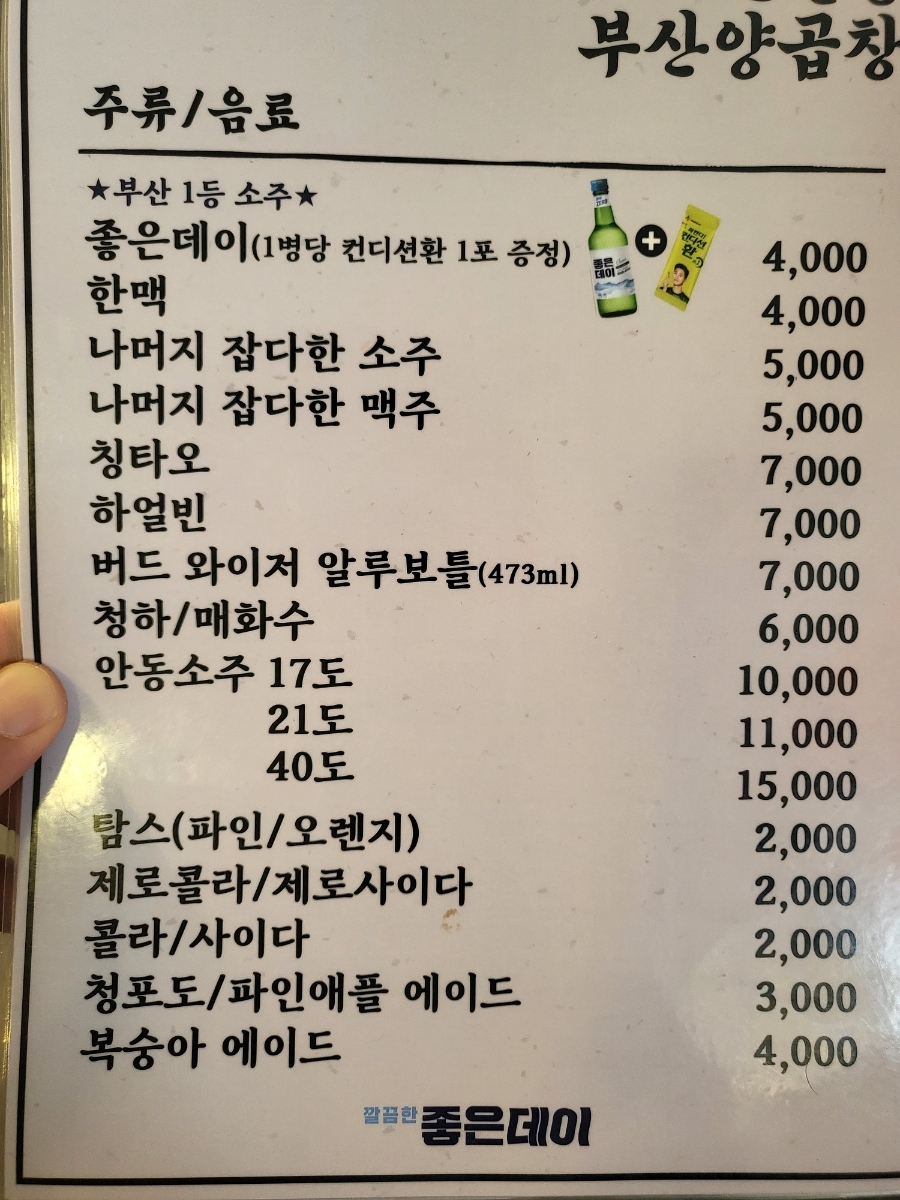 부산양곱창
주류/음료
★부산 1등 소주★
좋은데이(1병당 컨디션환 1포 증정) 4,000
좋은
데이
컨디션
환
한맥 4,000
나머지 잡다한 소주 5,000
나머지 잡다한 맥주 5,000
칭타오 7,000
하얼빈 7,000
버드 와이저 알루보틀(473ml) 7,000
청하/매화수 6,000
안동소주 17도 10,000
21도 11,000
40도 15,000
탐스(파인/오렌지) 2,000
제로콜라/제로사이다 2,000
콜라/사이다 2,000
청포도/파인애플 에이드 3,000
복숭아 에이드 4,000
깔끔한 좋은데이